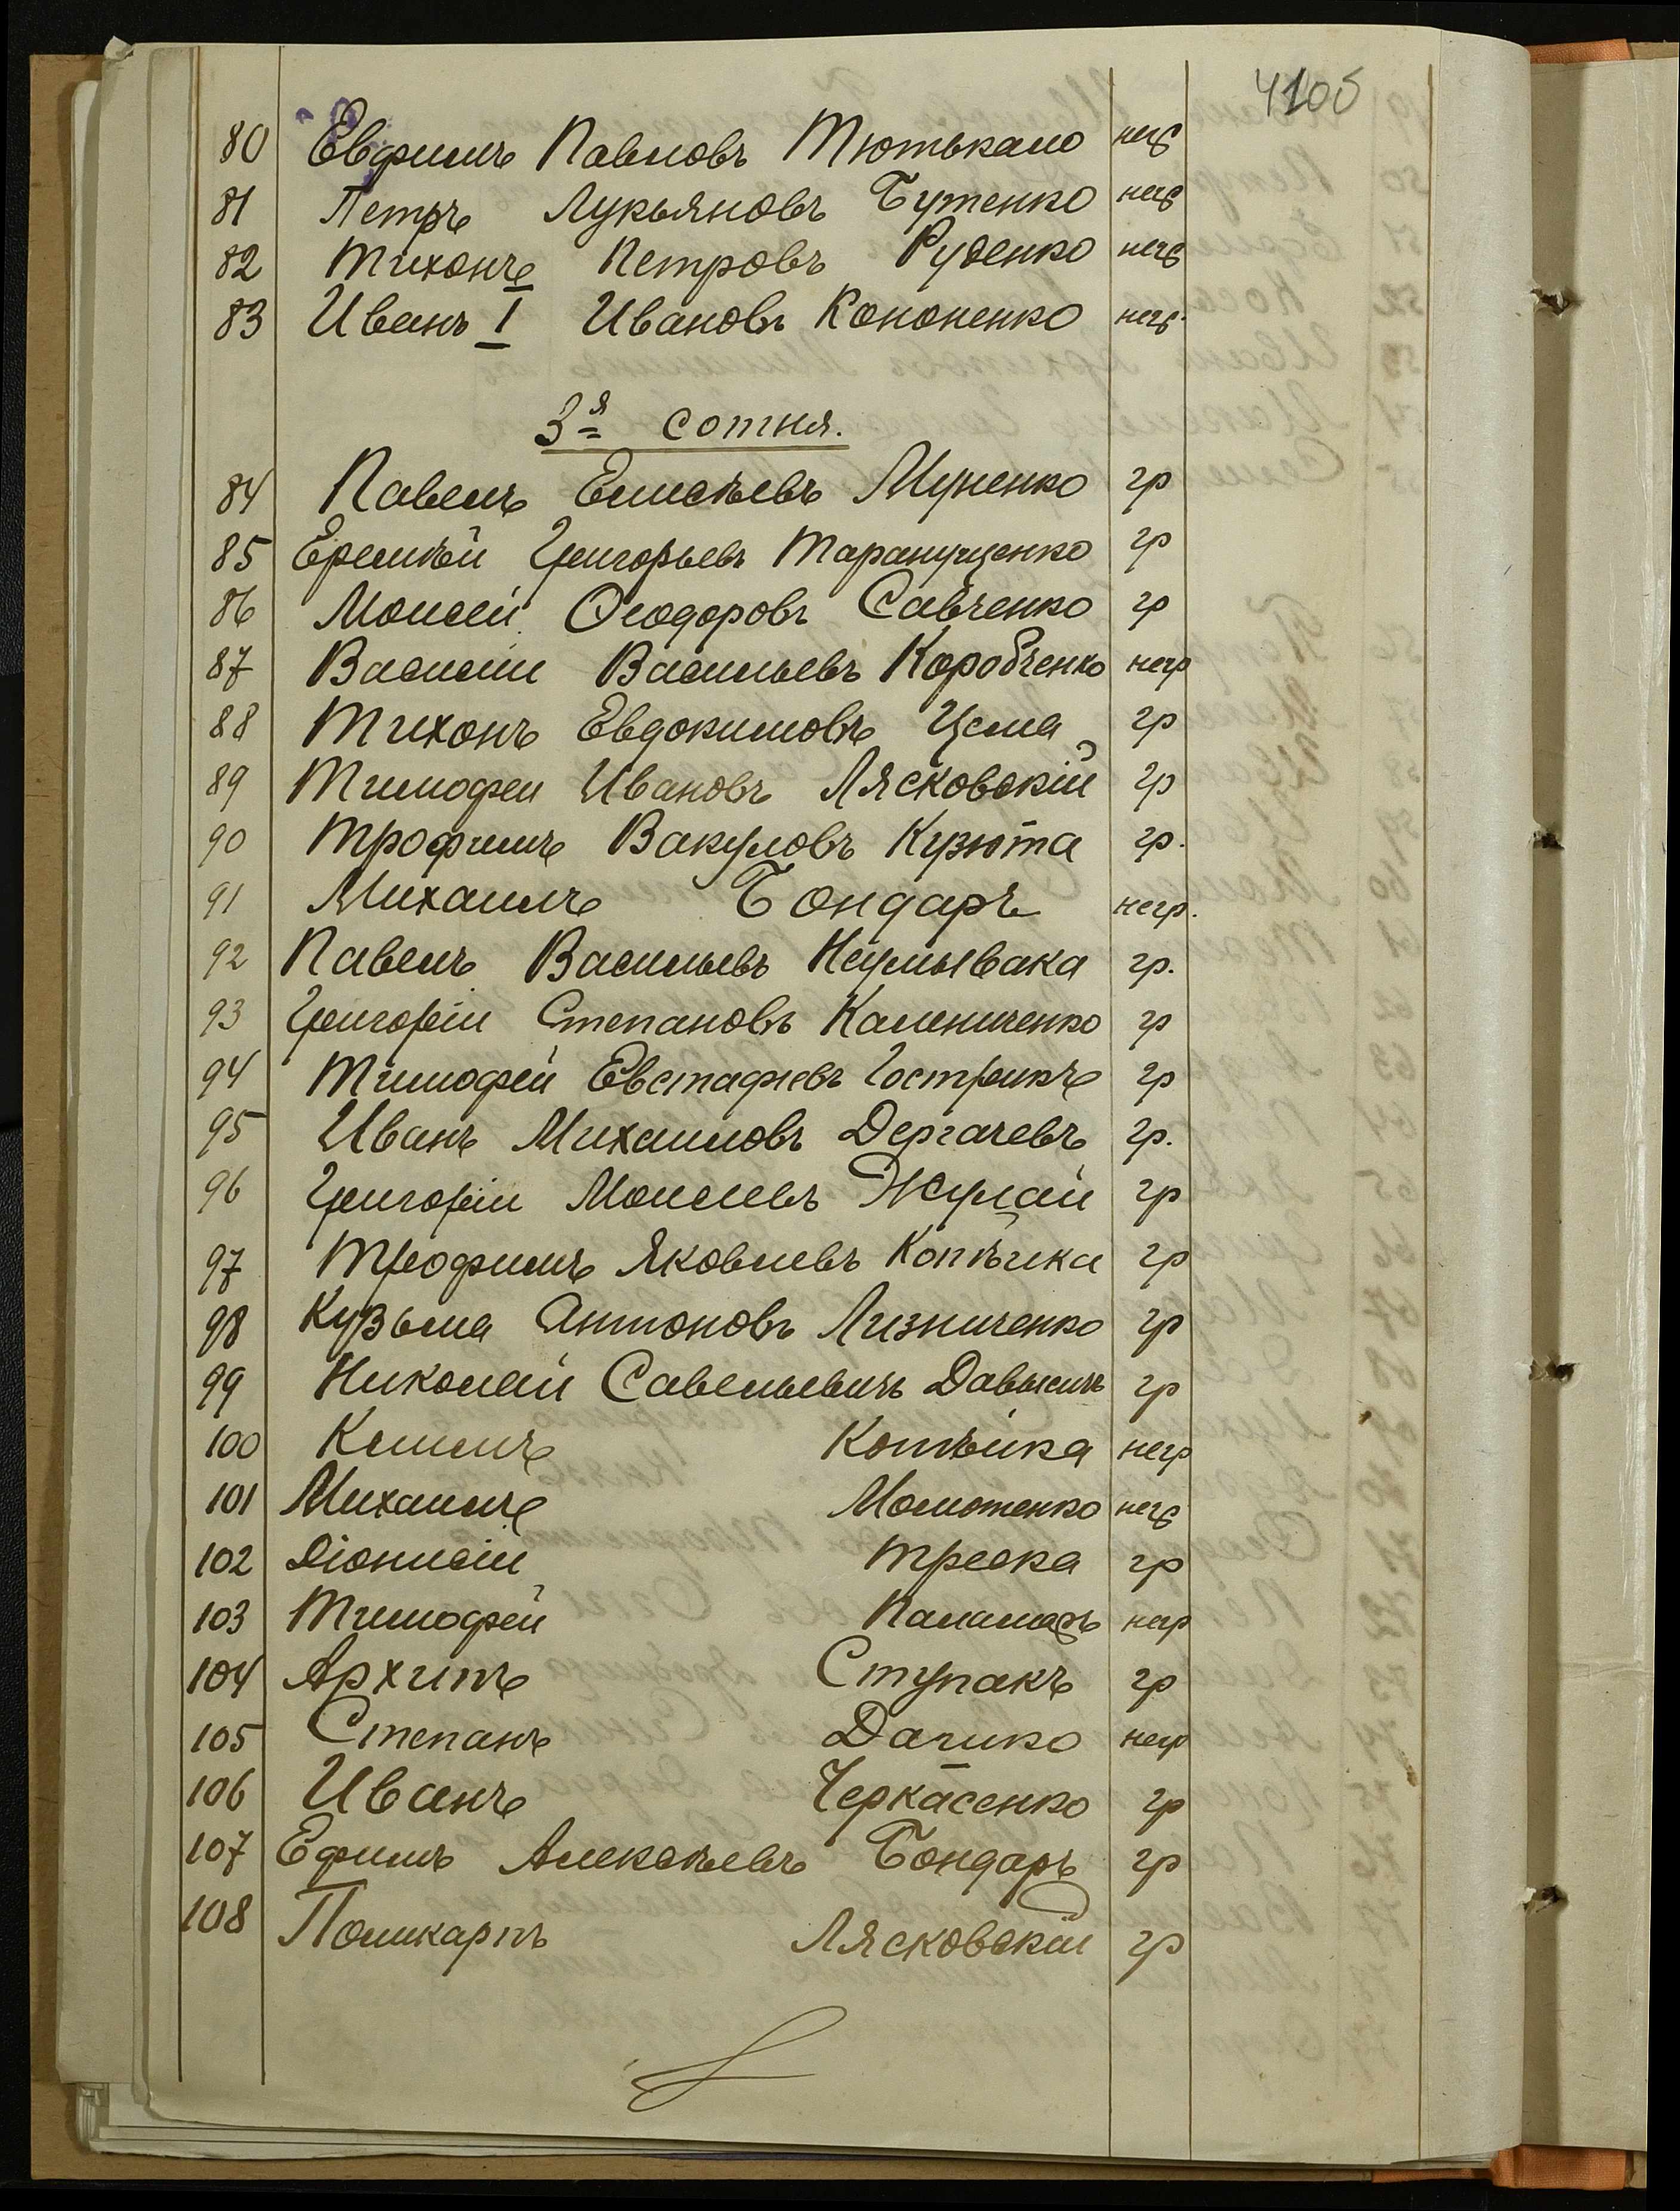 4105
80 Евфимъ Павловъ Тютькало негр
81 Петръ Лукьяновъ Бутенко негр
82 Тихонъ Петровъ Руденко негр
83 Иванъ I Ивановъ Кононенко негр.
3я сотня.
84 Павелъ Елисѣевъ Муненко гр
85 Еремѣй Григорьевъ Таранущенко гр
86 Моисей Ѳеодоровъ Савченко гр
87 Василій Васильевъ Коробченко негр
88 Тихонъ Евдокимовъ Цема гр
89 Тимофей Ивановъ Лясковскій гр
90 Трофимъ Вакуловъ Кузюта гр.
91 Михаилъ Бондарь негр.
92 Павелъ Васильевъ Неумывака гр.
93 Григорій Степановъ Калениченко гр
94 Тимофей Евстафіевъ Гострикъ гр
95 Иванъ Михаиловъ Дергачевъ гр.
96 Григорій Моисеевъ Жулай гр
97 Трофимъ Яковлевъ Копѣйка гр
98 Кузьма Антоновъ Лизниченко гр
99 Николай Савельевичъ гр
100 Климъ Копѣйка негр
101 Михаилъ Момотенко негр
102 Діонисій Треска гр
103 Тимофей Каламарь негр
104 Архипъ Ступакъ гр
105 Степанъ Дачико негр
106 Иванъ Черкасенко гр
107 Ефимъ Алексѣевъ Бондарь гр
108 Поликарпъ Лясковскій гр